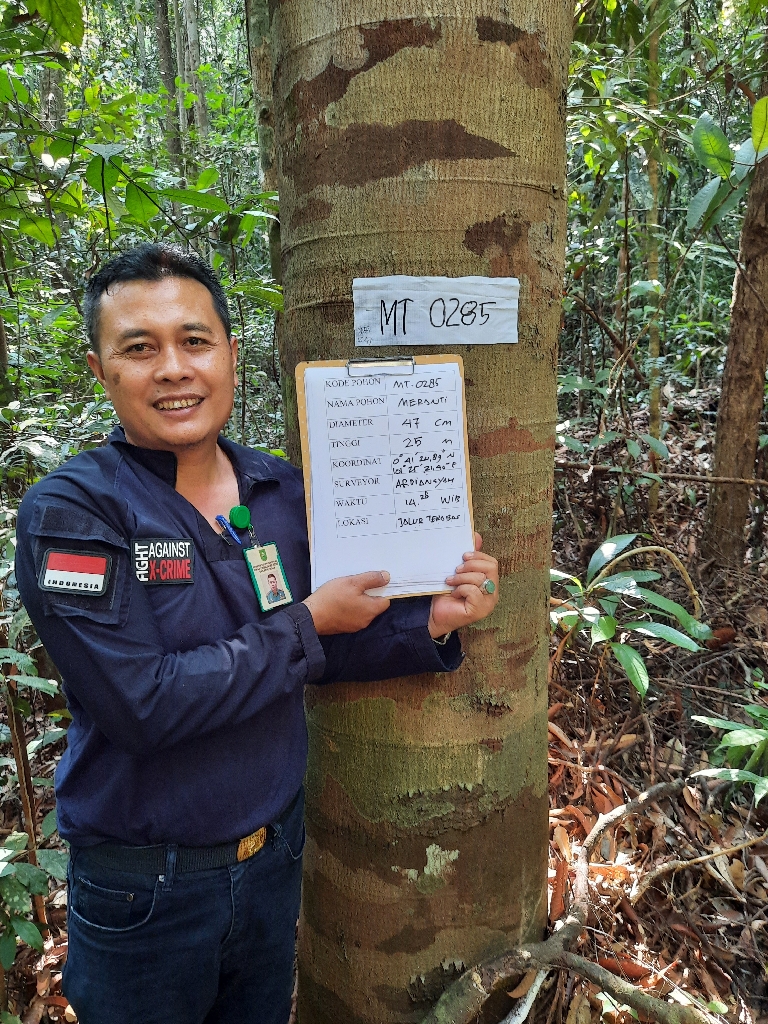 MT 0285
KODE POHON MT-0285
NAMA POHON MERANTI
DIAMETER 47 CM
TINGGI 25 M
KOORDINAT 0° 41' 24,89" N
101° 25' 21,90" E
SURVEYOR ARDIANSYAH
WAKTU 14.25 WIB
LOKASI JALUR TENGGER
FIGHT
AGAINST
X-CRIME
INDONESIA